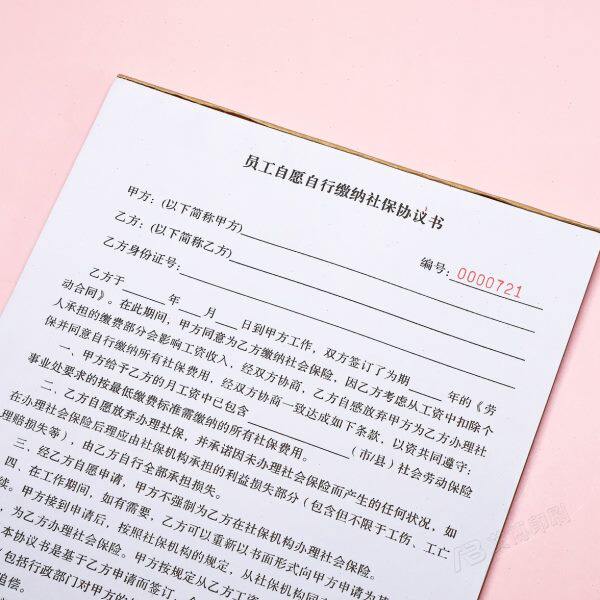 员工自愿自行缴纳社保协议书
甲方：(以下简称甲方)
乙方：(以下简称乙方)
编号：0000721
乙方身份证号：
乙方于 年 月 日到甲方工作，双方签订了为期 年的《劳
动合同》。在此期间，甲方同意为乙方缴纳社会保险，因乙方考虑从工资中扣除个
人承担的缴费部分会影响工资收入，经双方协商，乙方自感放弃甲方为乙方办理社
保并同意自行缴纳所有社保费用，经双方协商一致达成如下条款，以资共同遵守：
一、甲方给予乙方的月工资中已包含 （市/县）社会劳动保险
事业处要求的按最低缴费标准需缴纳的所有社保费用。
二、乙方自愿放弃办理社保，并承诺因未办理社会保险而产生的任何状况，如
在办理社会保险后理应由社保机构承担的利益损失部分（包含但不限于工伤、工亡
理赔损失等），由乙方自行全部承担损失。
三、经乙方自愿申请，甲方不强制为乙方在社保机构办理社会保险。
四、在工作期间，如有需要，乙方可以重新以书面形式向甲方申请为其
续。甲方接到申请后，按照社保机构的规定，从社保机构同
，为乙方办理社会保险。甲方按规定从乙方工资
本协议书是基于乙方申请而签订，
（包括行政部门对甲方的
追偿。